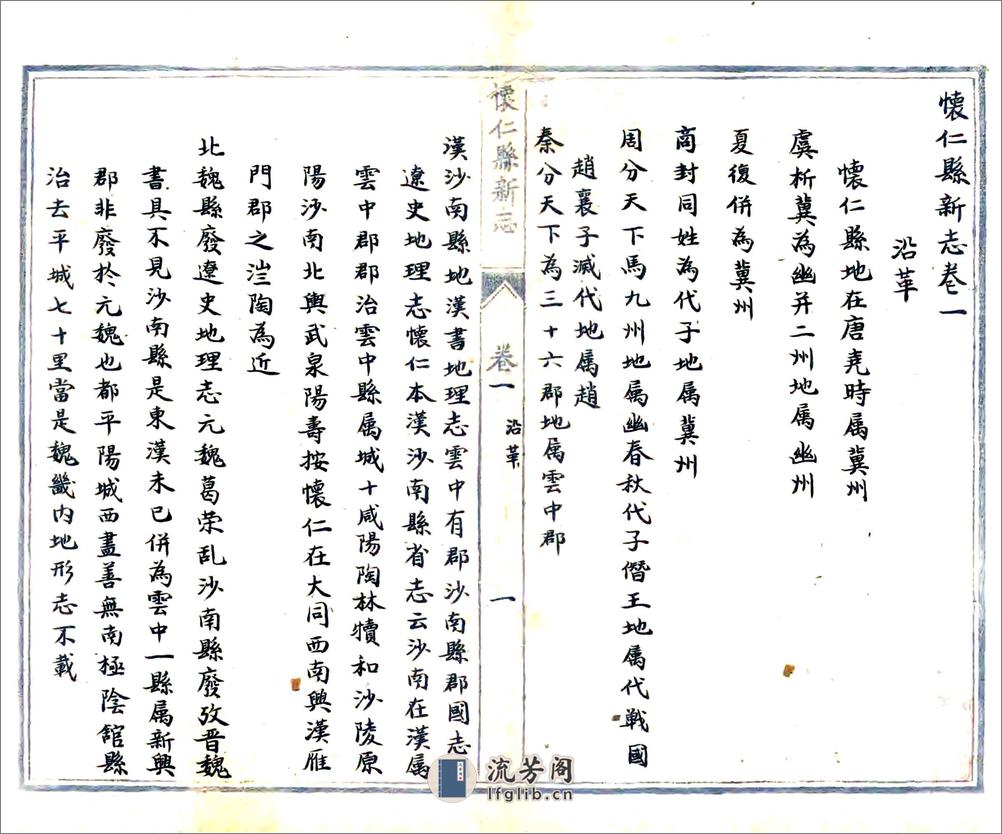 懷仁縣新志卷一
沿革
懷仁縣地在唐堯時属冀州
虞析冀為幽并二州地属幽州
夏復併為冀州
商封同姓為代子地属冀州
周分天下馬九州地属幽春秋代子僭王地属代戰國
趙襄子滅代地属趙
秦分天下為三十六郡地属雲中郡
懷仁縣新志
卷一
沿革
一
漢沙南縣地漢書地理志雲中有郡沙南縣郡國志
遼史地理志懷仁本漢沙南縣省志云沙南在漢属
雲中郡郡治雲中縣属城十咸陽陶林犢和沙陵原
陽沙南北輿武泉陽壽按懷仁在大同西南與漢雁
門郡之汪陶為近
北魏縣廢遼史地理志元魏葛荣乱沙南縣廢攷晋魏
書具不見沙南縣是東漢未已併為雲中一縣属新興
郡非廢於元魏也都平陽城西盡善無南極陰館縣
治去平城七十里當是魏畿内地形志不載
流芳阁
lfglib.cn